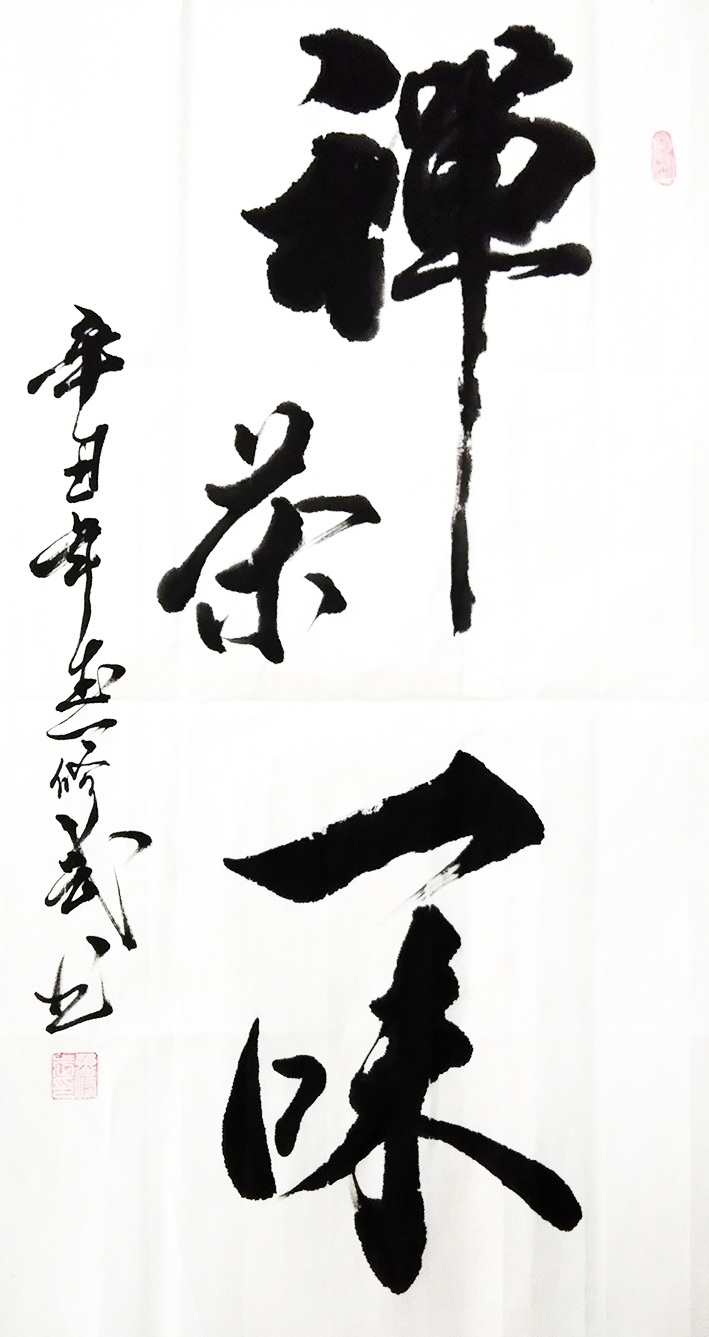 禪茶一味
辛丑年春修武书